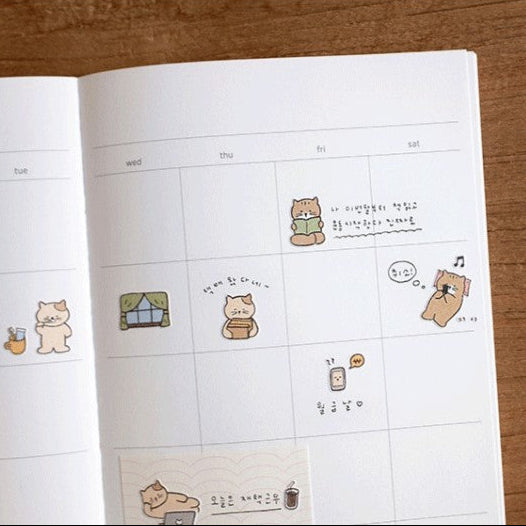 tue
wed thu fri sat
나 이번달부터 책읽고
운동시작한다 진짜로
택배 왔다네~
최고!
월급날♡
오늘은 재택근무